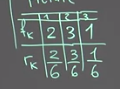 1 2 3
fk 2 3 1
rk 2/6 3/6 1/6